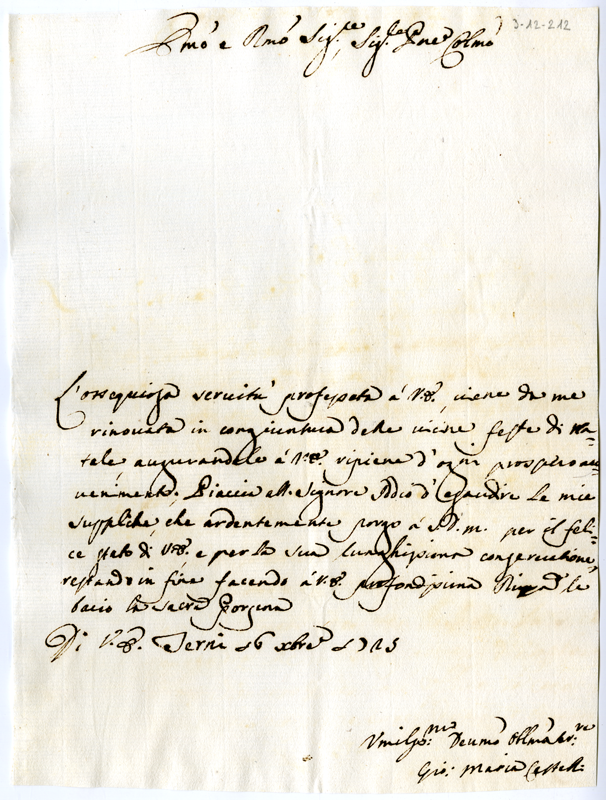 3-12-212
Emō e Rmō Sig.re, Sig.re Pne Colmō
L'ossequiosa servitù professata á V.E., viene da me
rinovata in congiuntura delle vicine feste di Na=
tale, augurandole á V.E. ripiene d'ogni prospero au=
uenimento; Piaccia all. Signore Iddio d'esaudire le mie
suppliche, che ardentemente porgo á S.D.M. per il feli=
ce stato di V.E. e per la sua lunghissima conseruatione,
restando in fine facendo á V.E. profondissima le
bacio la Sacra Porpora
Di V.E. Terni 16 xbre 1725
Vmiliss.mo Deumō Oblmō Ser.re
Gio: Maria Castelli